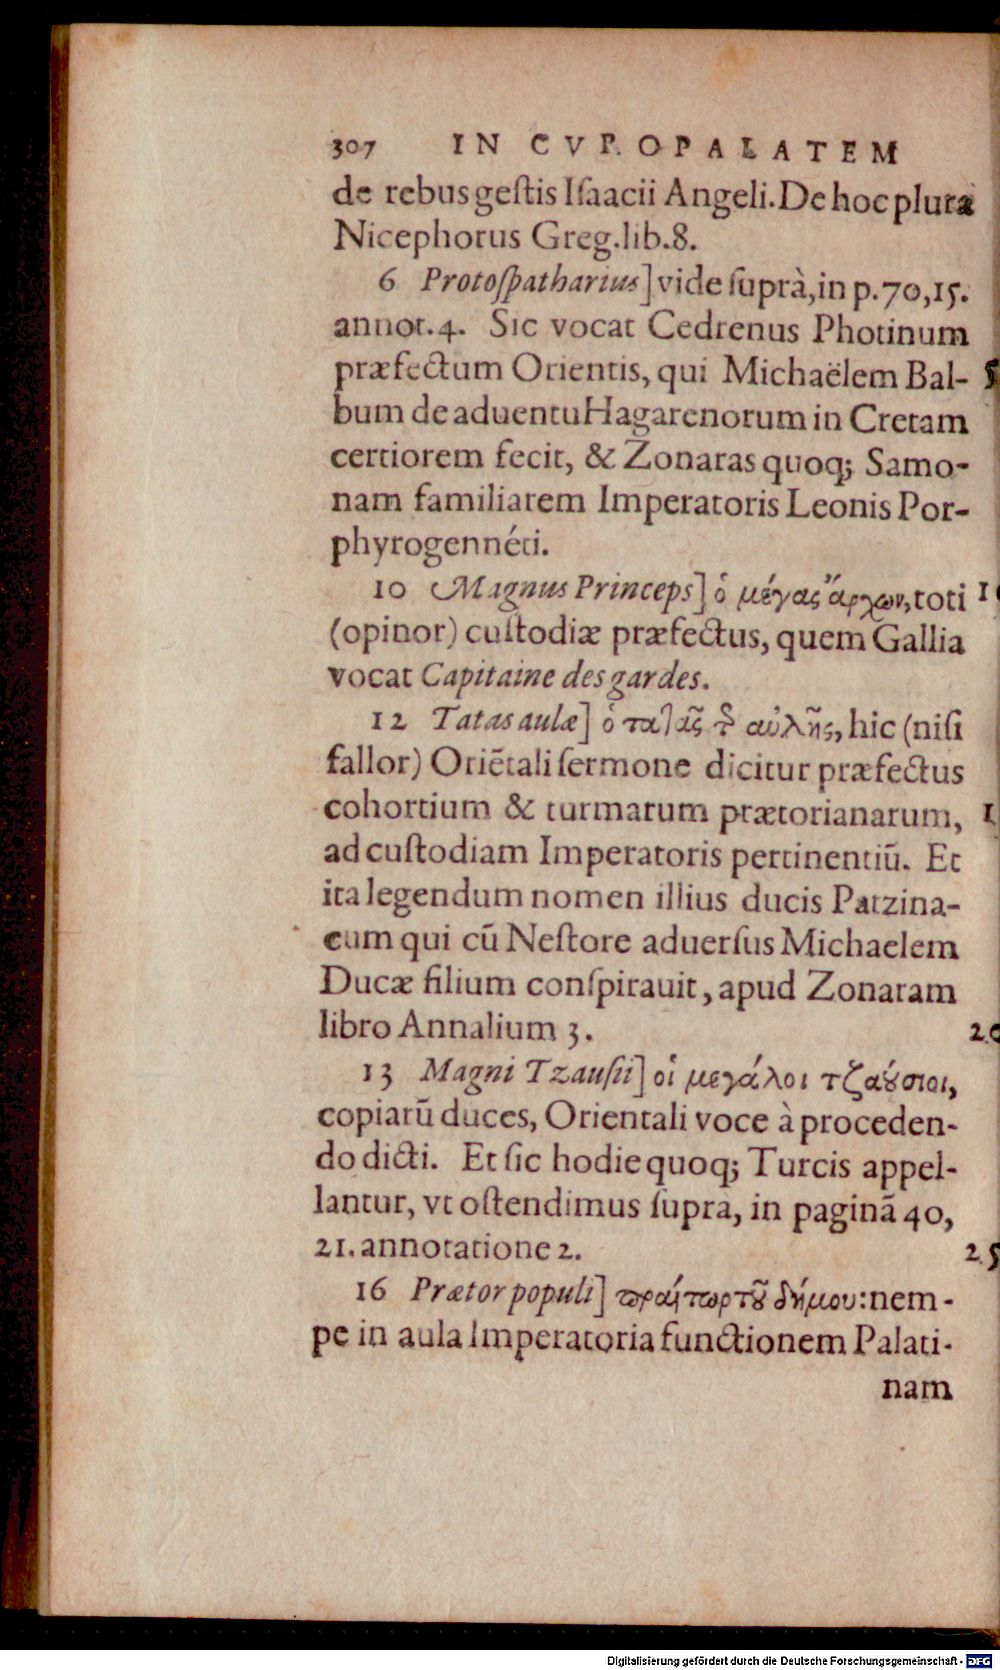 307 IN CVROPALATEM
de rebus gestis Isaacii Angeli. De hoc plura
Nicephorus Greg. lib. 8.
6 Protospatharius] vide suprà, in p. 70, 15.
annot. 4. Sic vocat Cedrenus Photinum
præfectum Orientis, qui Michaëlem Bal-
bum de aduentu Hagarenorum in Cretam
certiorem fecit, & Zonaras quoq; Samo-
nam familiarem Imperatoris Leonis Por-
phyrogennéti.
10 Magnus Princeps] ὁ μέγας ἄρχων, toti
(opinor) custodiæ præfectus, quem Gallia
vocat Capitaine des gardes.
12 Tatas aulæ] ὁ τατᾶς τῆς αὐλῆς, hic (nisi
fallor) Oriẽtali sermone dicitur præfectus
cohortium & turmarum prætorianarum,
ad custodiam Imperatoris pertinentiũ. Et
ita legendum nomen illius ducis Patzina-
cum qui cũ Nestore aduersus Michaelem
Ducæ filium conspirauit, apud Zonaram
libro Annalium 3.
20
13 Magni Tzausii] οἱ μεγάλοι τζαούσιοι,
copiarũ duces, Orientali voce à proceden-
do dicti. Et sic hodie quoq; Turcis appel-
lantur, vt ostendimus supra, in paginã 40,
21. annotatione 2.
25
16 Prætor populi] πραίτωρ τοῦ δήμου: nem-
pe in aula Imperatoria functionem Palati-
nam
Digitalisierung gefördert durch die Deutsche Forschungsgemeinschaft - DFG